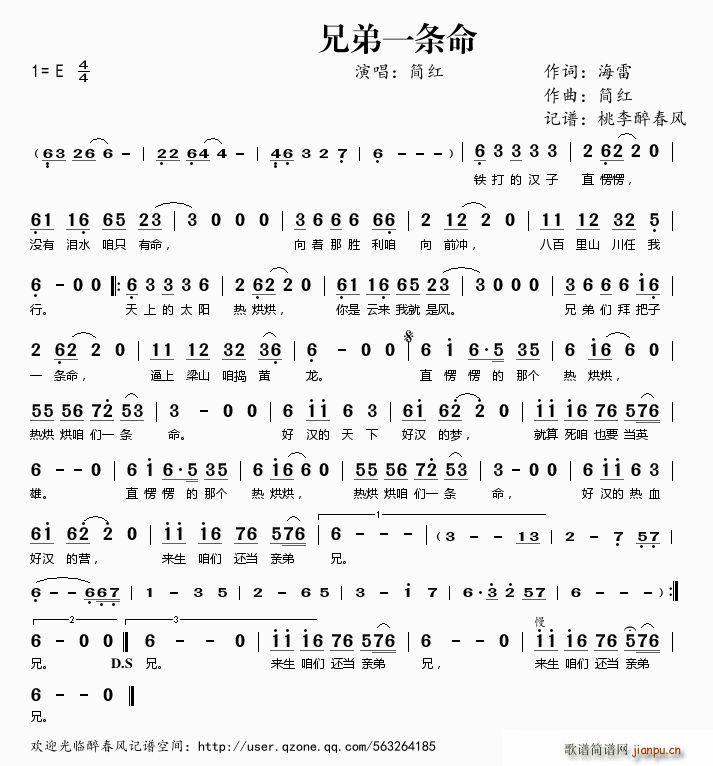 兄弟一条命
1= E 4/4 演唱：简红 作词：海雷
作曲：简红
记谱：桃李醉春风
(63 266 - | 22 644 - | 46 3 2 7 | 6 - - -) | 6 3 3 3 3 | 2 62 2 0 |
铁 打 的 汉 子 直 愣愣，
61 16 65 23 | 3 0 0 0 | 3 6 6 6 66 | 2 12 2 0 | 11 12 32 5 |
没有 泪水 咱只 有命， 向 着 那 胜 利咱 向 前冲， 八百 里山 川任 我
6 - 0 0 |: 6 3 3 3 6 | 2 62 2 0 | 61 16 65 23 | 3 0 0 0 | 3 6 6 6 i6 |
行。 天 上 的 太 阳 热 烘烘， 你是 云来 我就 是风。 兄 弟 们 拜 把子
2 62 2 0 | 11 12 32 36 | 6 - 0 0 | 6 i 6·5 35 | 6 i6 6 0 |
一 条命， 逼上 梁山 咱捣 黄 龙。 直 愣 愣 的 那个 热 烘烘，
55 56 72 53 | 3 - 0 0 | 6 ii 6 3 | 6i 62 2 0 | ii i6 76 576 |
热烘 烘咱 们一 条 命。 好 汉的 天 下 好汉 的梦， 就算 死咱 也要 当英
6 - - 0 | 6 i 6·5 35 | 6 i6 6 0 | 55 56 72 53 | 3 - 0 0 | 6 ii 6 3 |
雄。 直 愣 愣 的 那个 热 烘烘， 热烘 烘咱 们一 条 命， 好 汉的 热 血
6i 62 2 0 | ii i6 76 576 | 1 6 - - - | (3 - - 13 | 2 - 7 57 |
好汉 的营， 来生 咱们 还当 亲弟 兄。
6 - - 667 | 1 - 3 5 | 2 - 6 5 | 3 - 2 1 | 7 - - 6 | 6·3 2 57 | 6 - - -) :|
2 6 - 0 0 | 3 6 - - 0 | ii i6 76 576 | 6 - - 0 | 慢 ii i6 76 576 |
兄。 D.S 兄。 来生 咱们 还当 亲弟 兄， 来生 咱们 还当 亲弟
6 - - 0 ‖
兄。
欢迎光临醉春风记谱空间：http://user.qzone.qq.com/563264185
歌谱简谱网 jianpu.cn